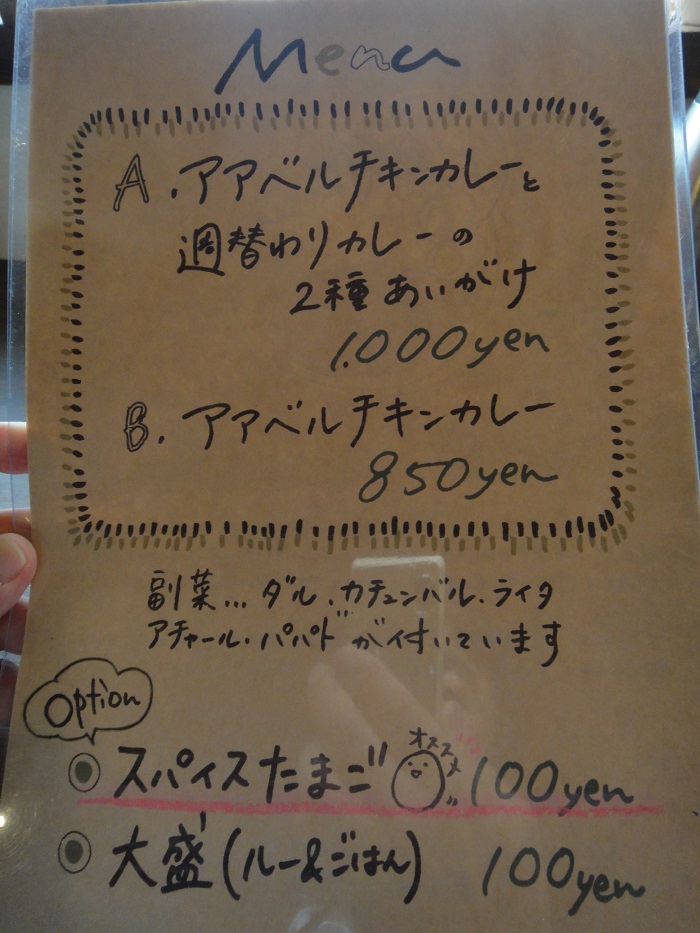 Menu
A.アアベルチキンカレーと
週替わりカレーの
2種あいがけ
1.000yen
B.アアベルチキンカレー
850yen
副菜...ダル.カチュンバル.ライタ
アチャール.パパドが付いています
Option
スパイスたまご オススメ 100yen
大盛(ルー&ごはん) 100yen